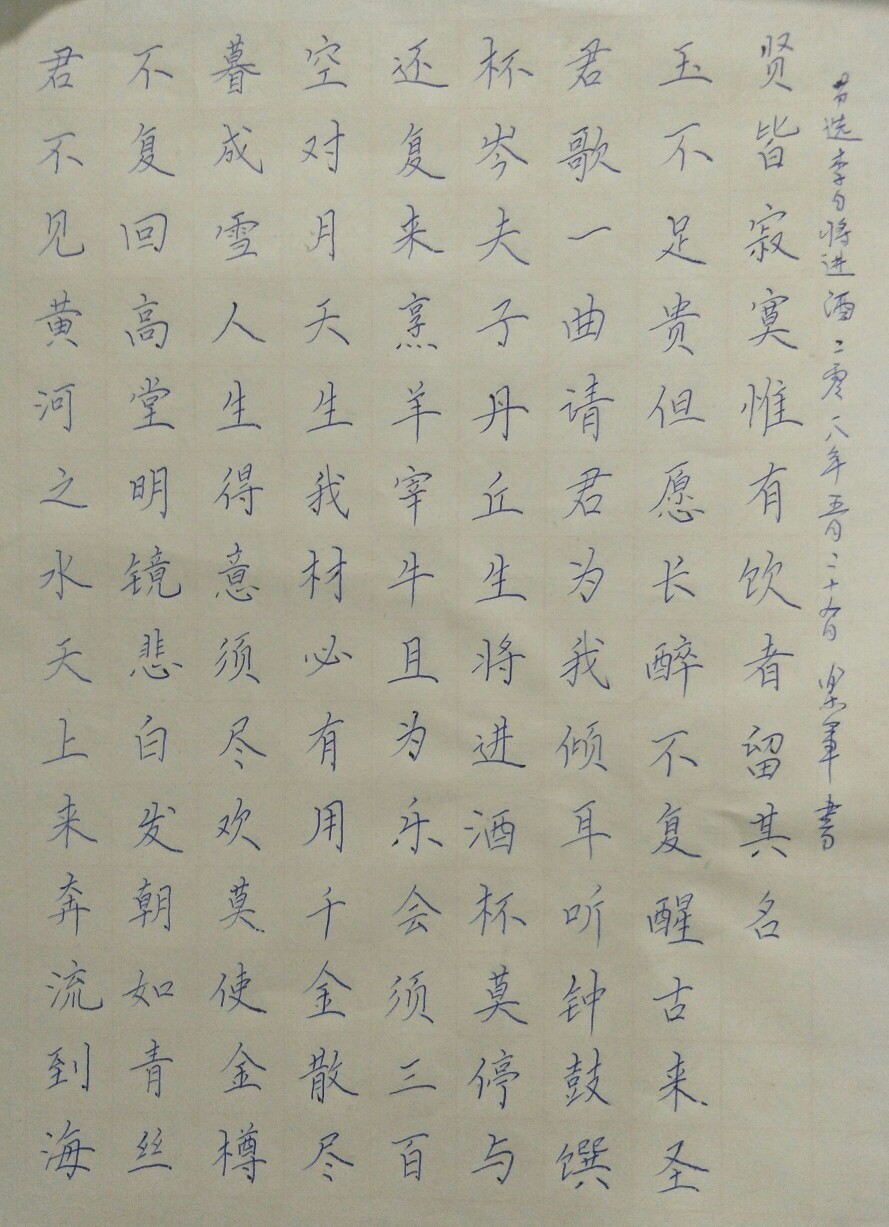 君不见黄河之水天上来奔流到海
不复回高堂明镜悲白发朝如青丝
暮成雪人生得意须尽欢莫使金樽
空对月天生我材必有用千金散尽
还复来烹羊宰牛且为乐会须三百
杯岑夫子丹丘生将进酒杯莫停与
君歌一曲请君为我倾耳听钟鼓馔
玉不足贵但愿长醉不复醒古来圣
贤皆寂寞惟有饮者留其名
选李白将进酒二零一八年五月二十 日 军书